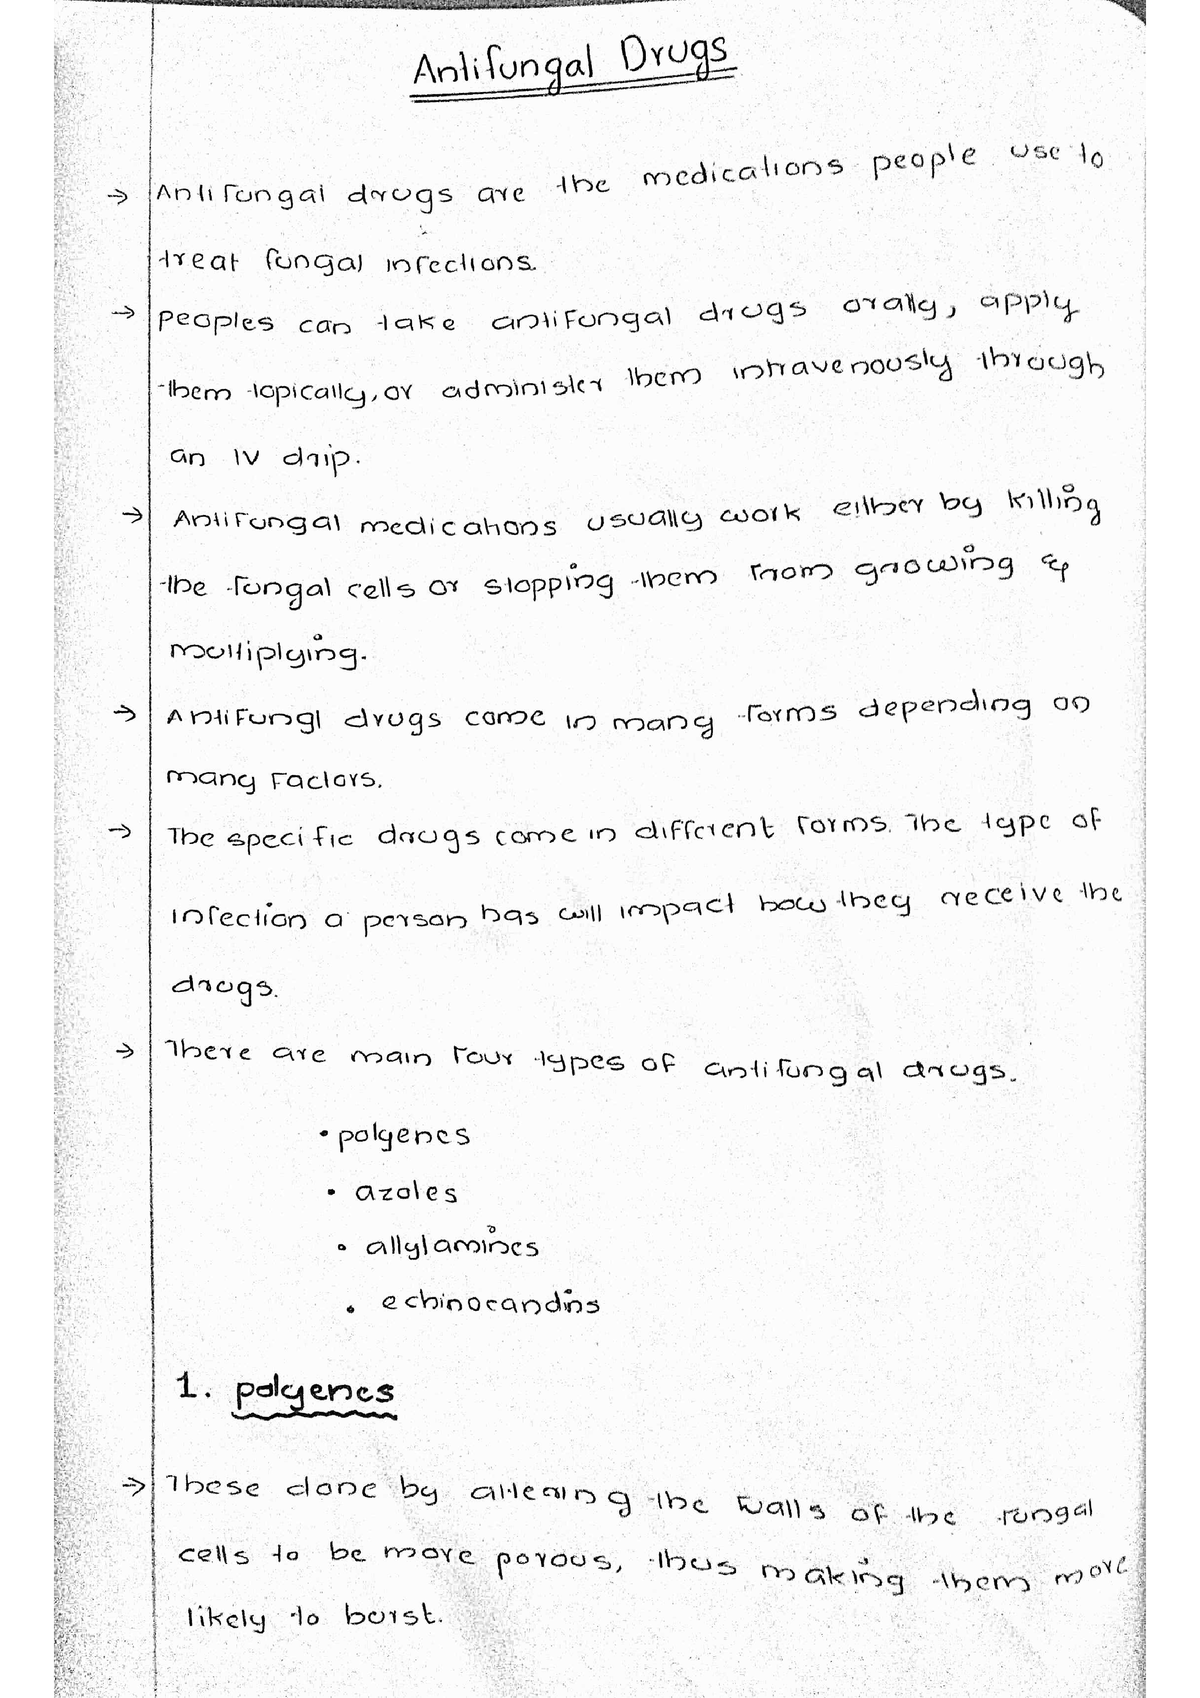 Antifungal Drugs
→ Antifungal drugs are the medications people use to
treat fungal infections.
→ peoples can take antifungal drugs orally, apply
them topically, or administer them intravenously through
an IV drip.
→ Antifungal medications usually work either by killing
the fungal cells or stopping them from growing &
multiplying.
→ Antifungl drugs come in many forms depending on
many Factors.
→ The specific drugs come in different forms. The type of
infection a person has will impact how they receive the
drugs.
→ There are main four types of antifungal drugs.
• polyenes
• azoles
• allylamines
• echinocandins
1. polyenes
→ These done by altering the walls of the fungal
cells to be more porous, thus making them more
likely to burst.